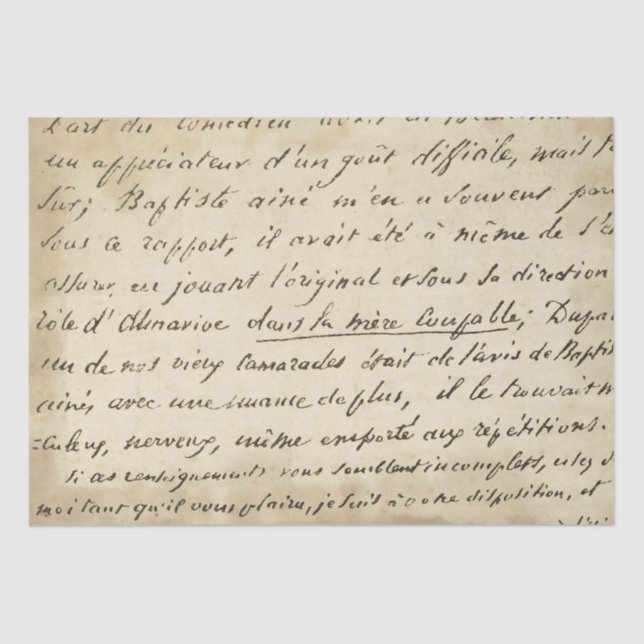 L'art du Comédien avait en
un appréciateur d'un goût difficile, mais
sûr; Baptiste ainé m'en a souvent
sous ce rapport, il avait été à même de
assurer en jouant l'original et sous sa direction
rôle d'Almavive dans la mère Coupable;
un de nos vieux Camarades était de l'avis de
ainé, avec une nuance de plus, il le trouvait
=culeux, nerveux, même emporté aux répétitions.
Si ces renseignements vous semblent incomplets,
moi tant qu'il vous plaira, je suis à votre disposition, et